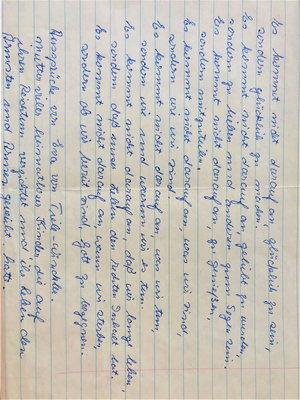 Es kommt nicht darauf an, glücklich zu sein,
sondern glücklich zu machen.
Es kommt nicht darauf an, geliebt zu werden,
sondern zu lieben und anderen zum Segen sein.
Es kommt nicht darauf an, zu genießen,
sondern mitzuteilen.
Es kommt nicht darauf an was wir sind,
sondern wie wir sind.
Es kommt nicht darauf an was wir tun,
sondern wie und warum wir es tun.
Es kommt nicht darauf an, daß wir lange leben,
sondern daß unser Leben den rechten Inhalt hat.
Es kommt nicht darauf an, wann wir sterben,
sondern ob wir bereit sind, Gott zu begegnen.
Aussprüche von Eva von Tiele-Winckler.
Mutter vieler heimatloser Kinder, die auf
ihren Reichtum verzichtet und ihr Leben den
Ärmsten und Armen geweiht hatte.